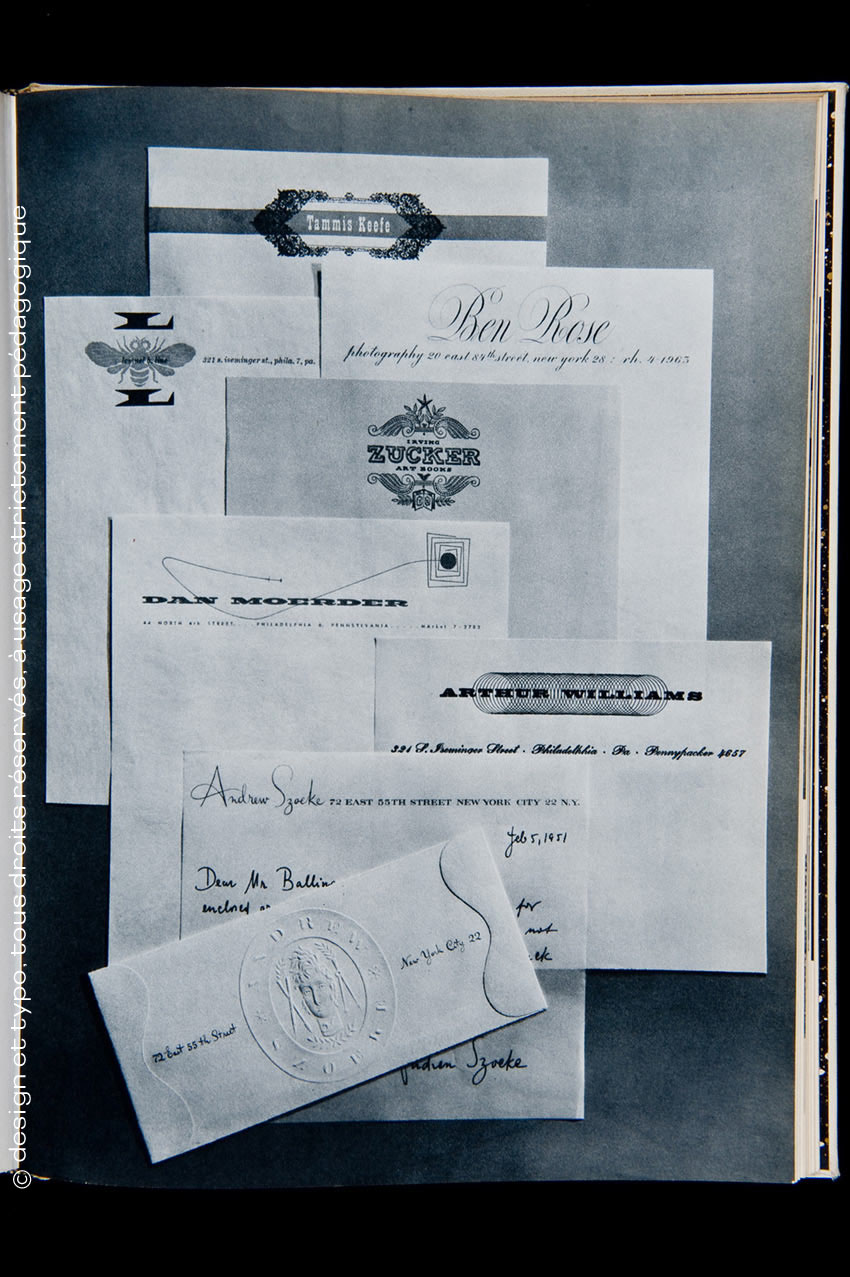 © design et typo. tous droits réservés, à usage strictement pédagogique
Tammis Keefe
Ben Rose
photography 20 east 84th street, new york 28 : rh. 4-1963
L
lionel b. line
221 s. iseminger st., phila. 7, pa.
L
IRVING
ZUCKER
ART BOOKS
DAN MOERDER
44 NORTH 4th STREET, PHILADELPHIA 6, PENNSYLVANIA MArket 7-3703
ARTHUR WILLIAMS
321 S. Iseminger Street · Philadelhhia · Pa · Pennypacker 4657
Andrew Szoeke 72 EAST 55TH STREET NEW YORK CITY 22 N.Y.
Feb 5, 1951
Dear Mr Ballin
enclosed
for
not
ANDREW
SZOEKE
72 East 55th Street
New York City 22
Andrew Szoeke